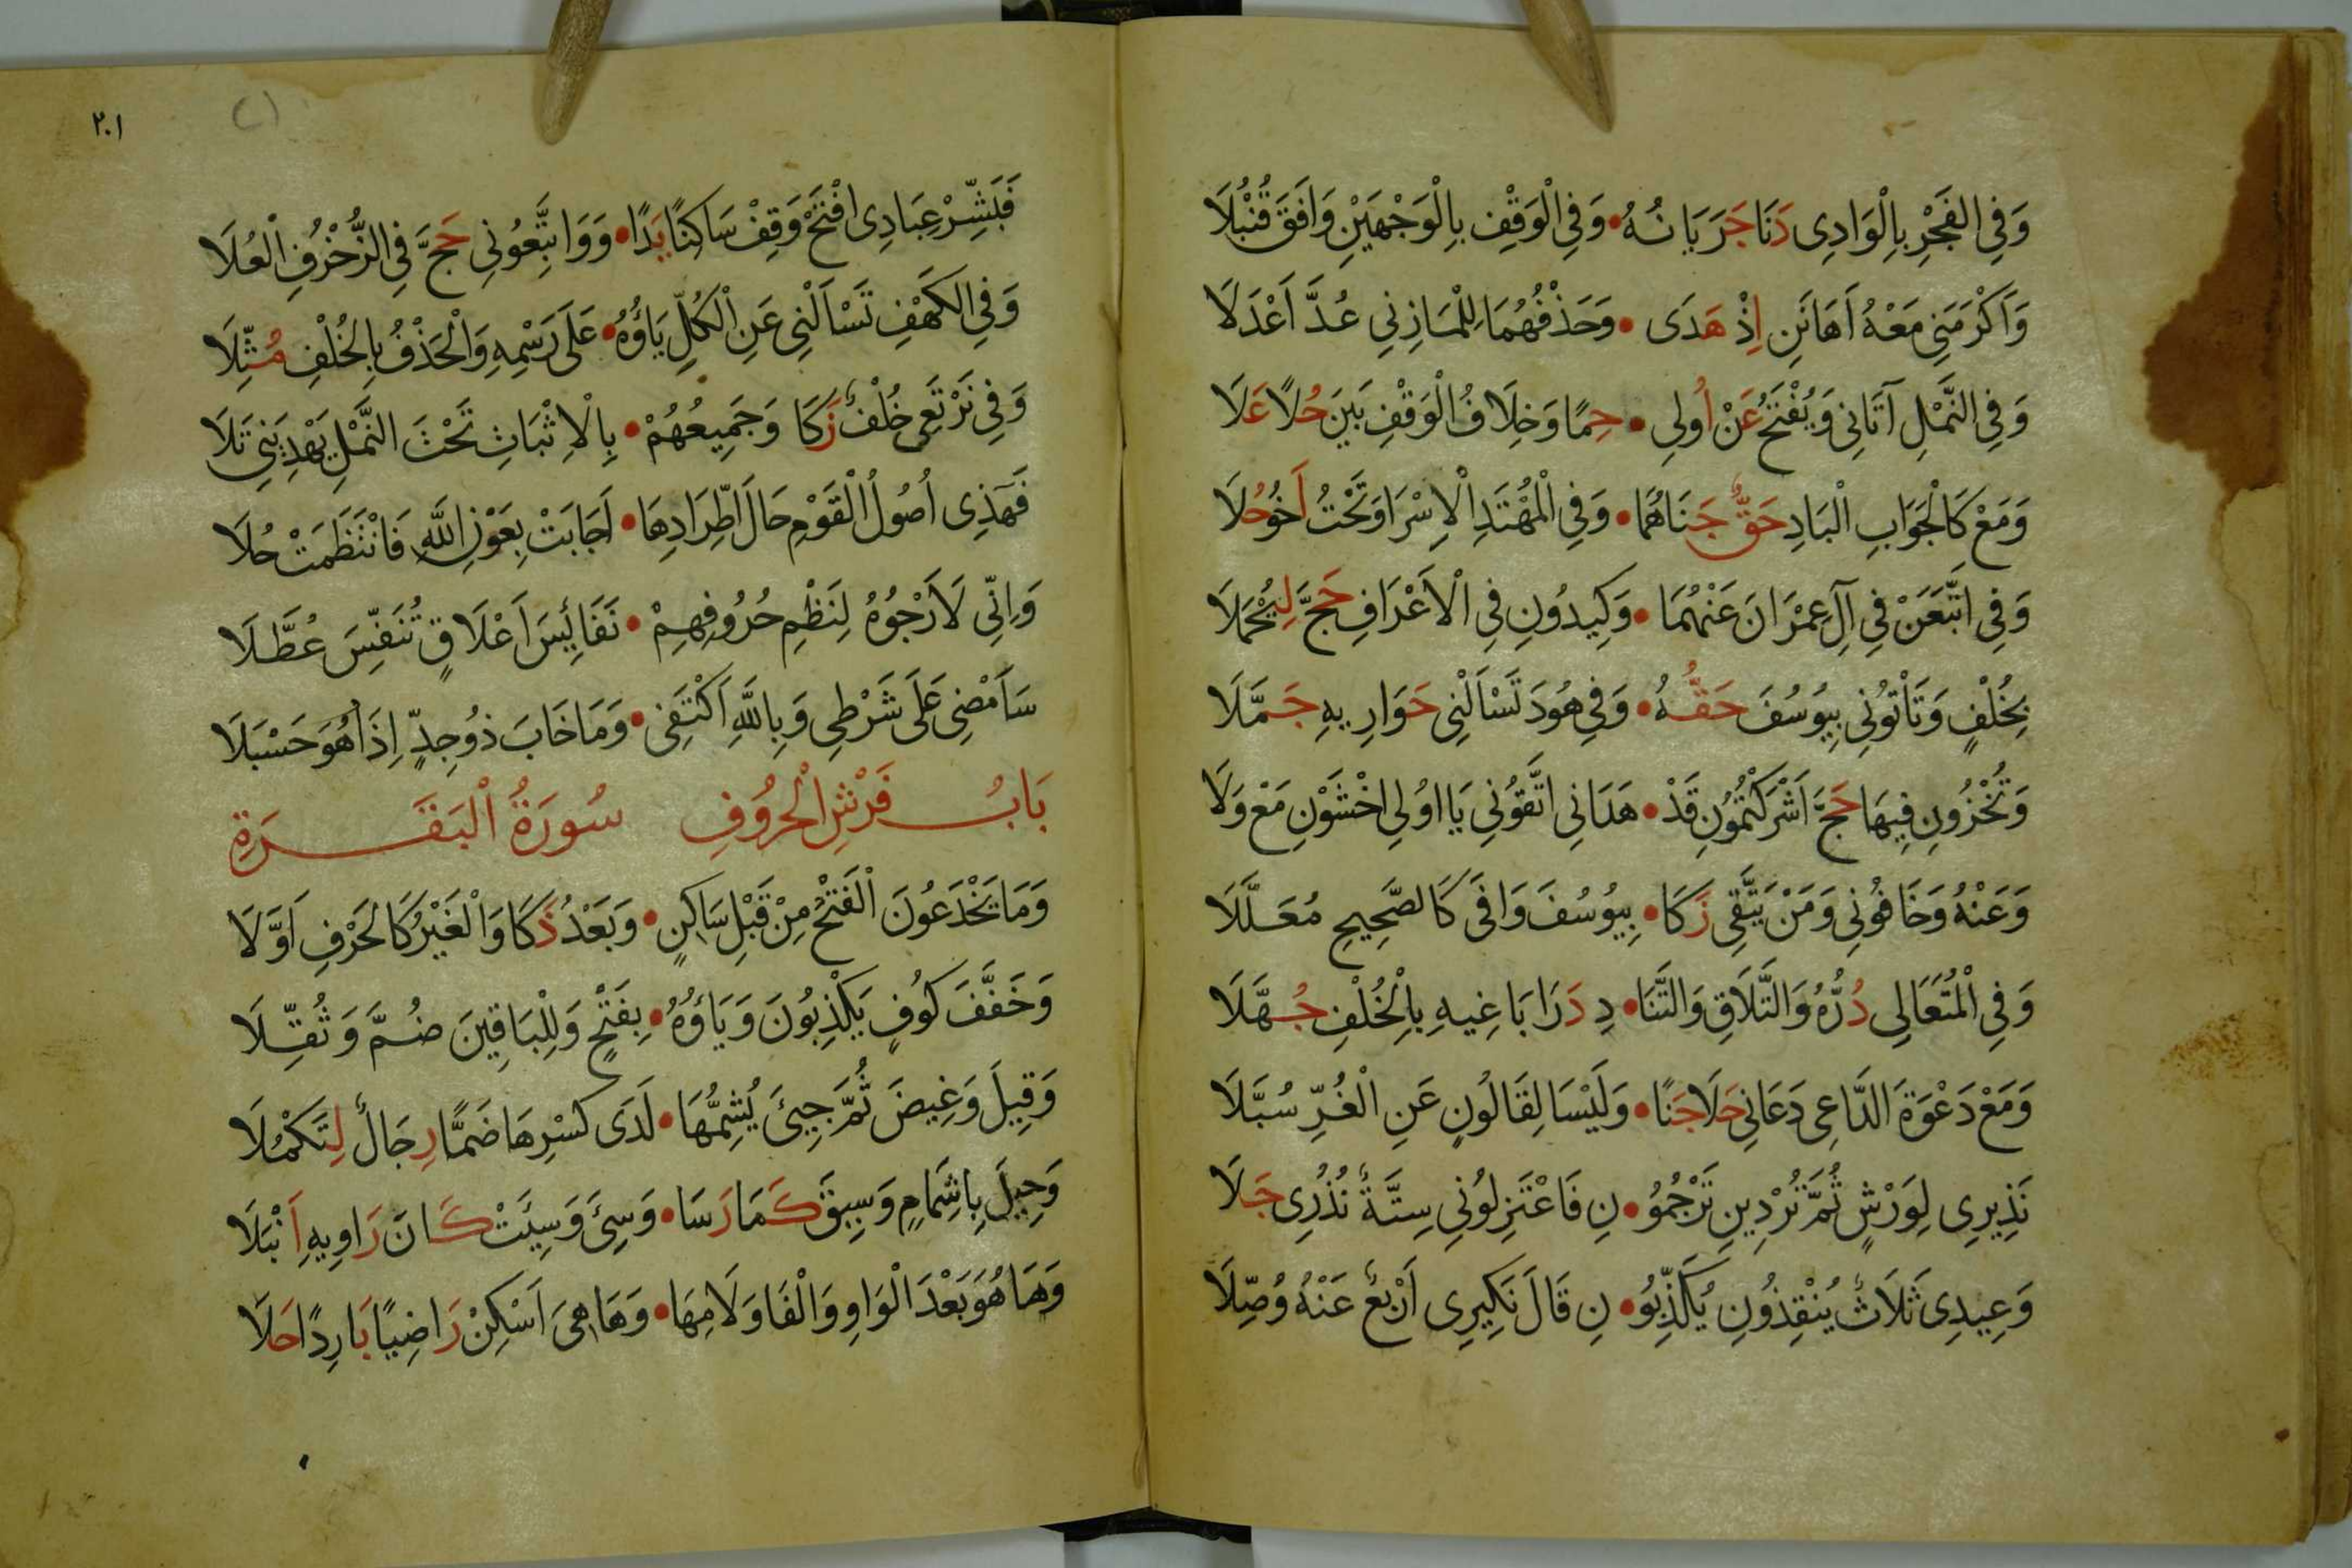 وَفِي الفَجْرِ بِالْوَادِى دَنَا جَرَيَانُهُ • وَفِي الْوَقْفِ بِالْوَجْهَيْنِ وَافَقَ قُنْبُلَا
وَأَكْرَمَنِى مَعْهُ أَهَانَنِ إِذْ هَدَى • وَحَذْفُهُمَا لِلْمَازِنِي عُدَّ أَعْدَلَا
وَفِي النَّمْلِ آتَانِى وَيُفْتَحُ عَنْ أُولِى • حِمًا وَخِلَافُ الْوَقْفِ بَيْنَ حُلًا عَلَا
وَمَعْ كَالْجَوَابِ الْبَادِ حَقٌّ جَنَاهُمَا • وَفِي الْمُهْتَدِ الْاِسْرَا وَتَحْتُ أَخُو حُلَا
وَفِي اتَّبَعَنْ فِي آلِ عِمْرَانَ عَنْهُمَا • وَكِيدُونِ فِي الْأَعْرَافِ حَجَّ لِيُحْمَلَا
بِخُلْفٍ وَتَأْتُونِي بِيُوسُفَ حَقُّهُ • وَفِي هُودَ تَسْأَلْنِى حَوَارِيهِ جَمَّلَا
وَتُخْزُونِ فِيهَا حَجَّ أَشْرَكْتُمُونِ قَدْ • هَدَانِى اتَّقُونِي يَا اوُلِى اخْشَوْنِ مَعْ وَلَا
وَعَنْهُ وَخَافُونِي وَمَنْ يَتَّقِى زَكَا • بِيُوسُفَ وَافَى كَالصَّحِيحِ مُعَلَّلَا
وَفِي الْمُتَعَالِى دُرُّهُ وَالتَّلَاقِ وَالتَّنَا • دِ دَرَا بَاغِيهِ بِالْخُلْفِ جُهَّلَا
وَمَعْ دَعْوَةَ الدَّاعِى دَعَانِي حَلَا جَنًا • وَلَيْسَا لِقَالُونٍ عَنِ الْغُرِّ سُبَّلَا
نَذِيرِى لِوَرْشٍ ثُمَّ تُرْدِينِ تَرْجُمُو • نِ فَاعْتَزِلُونِي سِتَّةٌ نُذُرِى جَلَا
وَعِيدِى ثَلَاثٌ يُنْقِذُونِ يُكَذِّبُو • نِ قَالَ نَكِيرِى أَرْبَعٌ عَنْهُ وُصِّلَا
٢٠١
فَبَشِّرْ عِبَادِى افْتَحْ وَقِفْ سَاكِنًا يَدًا • وَوَاتَّبِعُونِي حَجَّ فِي الزُّخْرُفِ الْعُلَا
وَفِي الكَهْفِ تَسْأَلْنِى عَنِ الْكُلِّ يَاؤُهُ • عَلَى رَسْمِهِ وَالْحَذْفُ بِالْخُلْفِ مُثِّلَا
وَفِي نَرْتَعِى خُلْفٌ زَكَا وَجَمِيعُهُمْ • بِالْاِثْبَاتِ تَحْتَ النَّمْلِ يَهْدِيَنِى تَلَا
فَهَذِى أُصُولُ الْقَوْمِ حَالَ اطِّرَادِهَا • أَجَابَتْ بِعَوْنِ اللَّهِ فَانْتَظَمَتْ حُلَا
وَإِنِّي لَأَرْجُوهُ لِنَظْمِ حُرُوفِهِمْ • نَفَائِسَ أَعْلَاقٍ تُنَفِّسَ عُطَّلَا
سَأَمْضِى عَلَى شَرْطِى وَبِاللَّهِ أَكْتَفِى • وَمَا خَابَ ذُو جِدٍّ إِذَا هُوَ حَسْبَلَا
بَابُ فَرْشِ الْحُرُوفِ سُورَةُ الْبَقَرَةِ
وَمَا يَخْدَعُونَ الْفَتْحُ مِنْ قَبْلِ سَاكِنٍ • وَبَعْدُ ذَكَا وَالْغَيْرُ كَالْحَرْفِ أَوَّلَا
وَخَفَّفَ كُوفٍ يَكْذِبُونَ وَيَاؤُهُ • بِفَتْحٍ وَلِلْبَاقِينَ ضُمَّ وَثُقِّلَا
وَقِيلَ وَغِيضَ ثُمَّ جِيئَ يُشِمُّهَا • لَدَى كَسْرِهَا ضَمًّا رِجَالٌ لِتَكْمُلَا
وَحِيلَ بِإِشْمَامٍ وَسِيقَ كَمَا رَسَا • وَسِئَ وَسِيئَتْ كَانَ رَاوِيهِ أَنْبَلَا
وَهَا هُوَ بَعْدَ الْوَاوِ وَالْفَا وَلَامِهَا • وَهَا هِىَ أَسْكِنْ رَاضِيًا بَارِدًا حَلَا